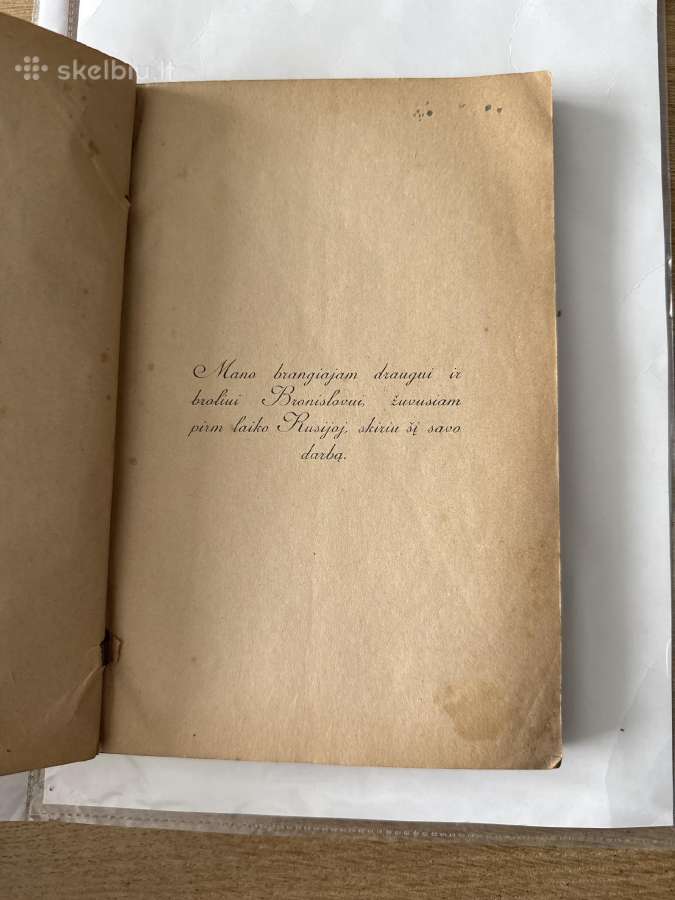 skelbiu.lt
Mano brangiajam draugui ir
broliui Bronislovui, žuvusiam
pirm laiko Rusijoj, skiriu šį savo
darbą.